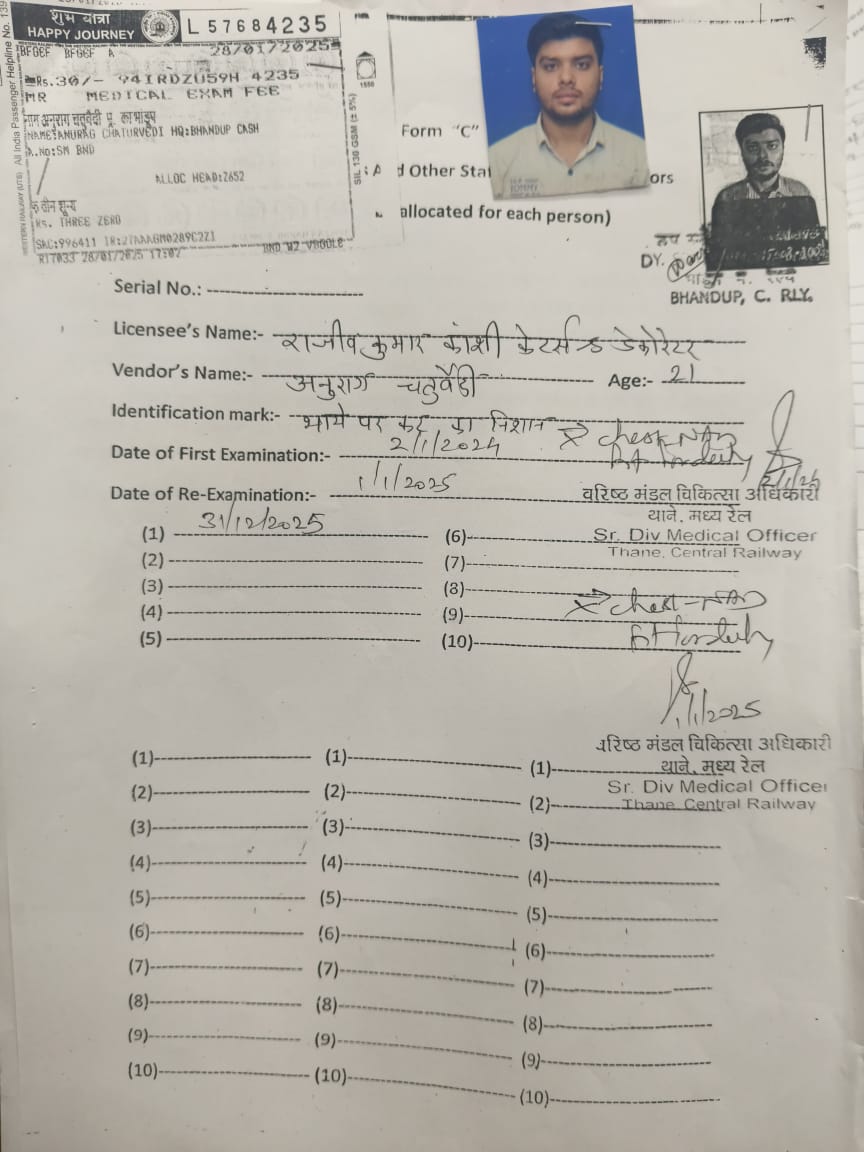 शुभ यात्रा
HAPPY JOURNEY
L 57684235
28/01/2025
BFGEF BFGEF A
Rs.30/- 94IRDZU59H 4235
MR MEDICAL EXAM FEE
नाम अनुराग चतुर्वेदी
NAME:ANURAG CHATURVEDI HQ:BHANDUP CASH
A..NO:SM BND
ALLOC HEAD:2652
रु तीन शून्य
Rs. THREE ZERO
SAC:996411 IR:27AAAGM0289C2Z1
R17033 28/01/2025 17:02
All India Passenger Helpline No. 139
WESTERN RAILWAY (UTS)
SIL 130 GSM (± 5%)
Form "C"
d Other Stat
ors
allocated for each person)
DY.
BHANDUP, C. RLY.
Serial No.:
Licensee's Name:- राजीव कुमार काशी केटर्स & डेकोरेटर
Vendor's Name:- अनुराग चतुर्वेदी Age:- 21
Identification mark:- माथे पर कट का निशान
Date of First Examination:- 2/1/2024
Date of Re-Examination:- 1/1/2025
वरिष्ठ मंडल चिकित्सा अधिकारी
थाने, मध्य रेल
Sr. Div Medical Officer
Thane, Central Railway
(1) 31/12/2025 (6)
(2) (7)
(3) (8)
(4) (9)
(5) (10)
1/1/2025
वरिष्ठ मंडल चिकित्सा अधिकारी
थाने, मध्य रेल
Sr. Div Medical Officer
Thane, Central Railway
(1) (1) (1)
(2) (2) (2)
(3) (3) (3)
(4) (4) (4)
(5) (5) (5)
(6) (6) (6)
(7) (7) (7)
(8) (8) (8)
(9) (9) (9)
(10) (10) (10)